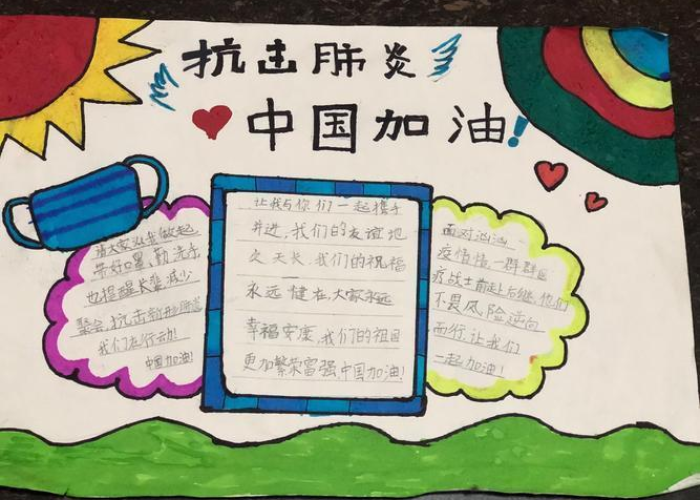 抗击肺炎
中国加油!
请大家从我做起
带好口罩,勤洗手
也提醒长辈减少
聚会,抗击新型肺炎
我们在行动!
中国加油!
让我与你们一起携手
并进,我们的友谊地
久天长,我们的祝福
永远健在,大家永远
幸福安康,我们的祖国
更加繁荣富强,中国加油!
面对汹汹
疫情情一群群医
疗战士前赴后继,他们
不畏风险逆向
而行,让我们
一起加油!